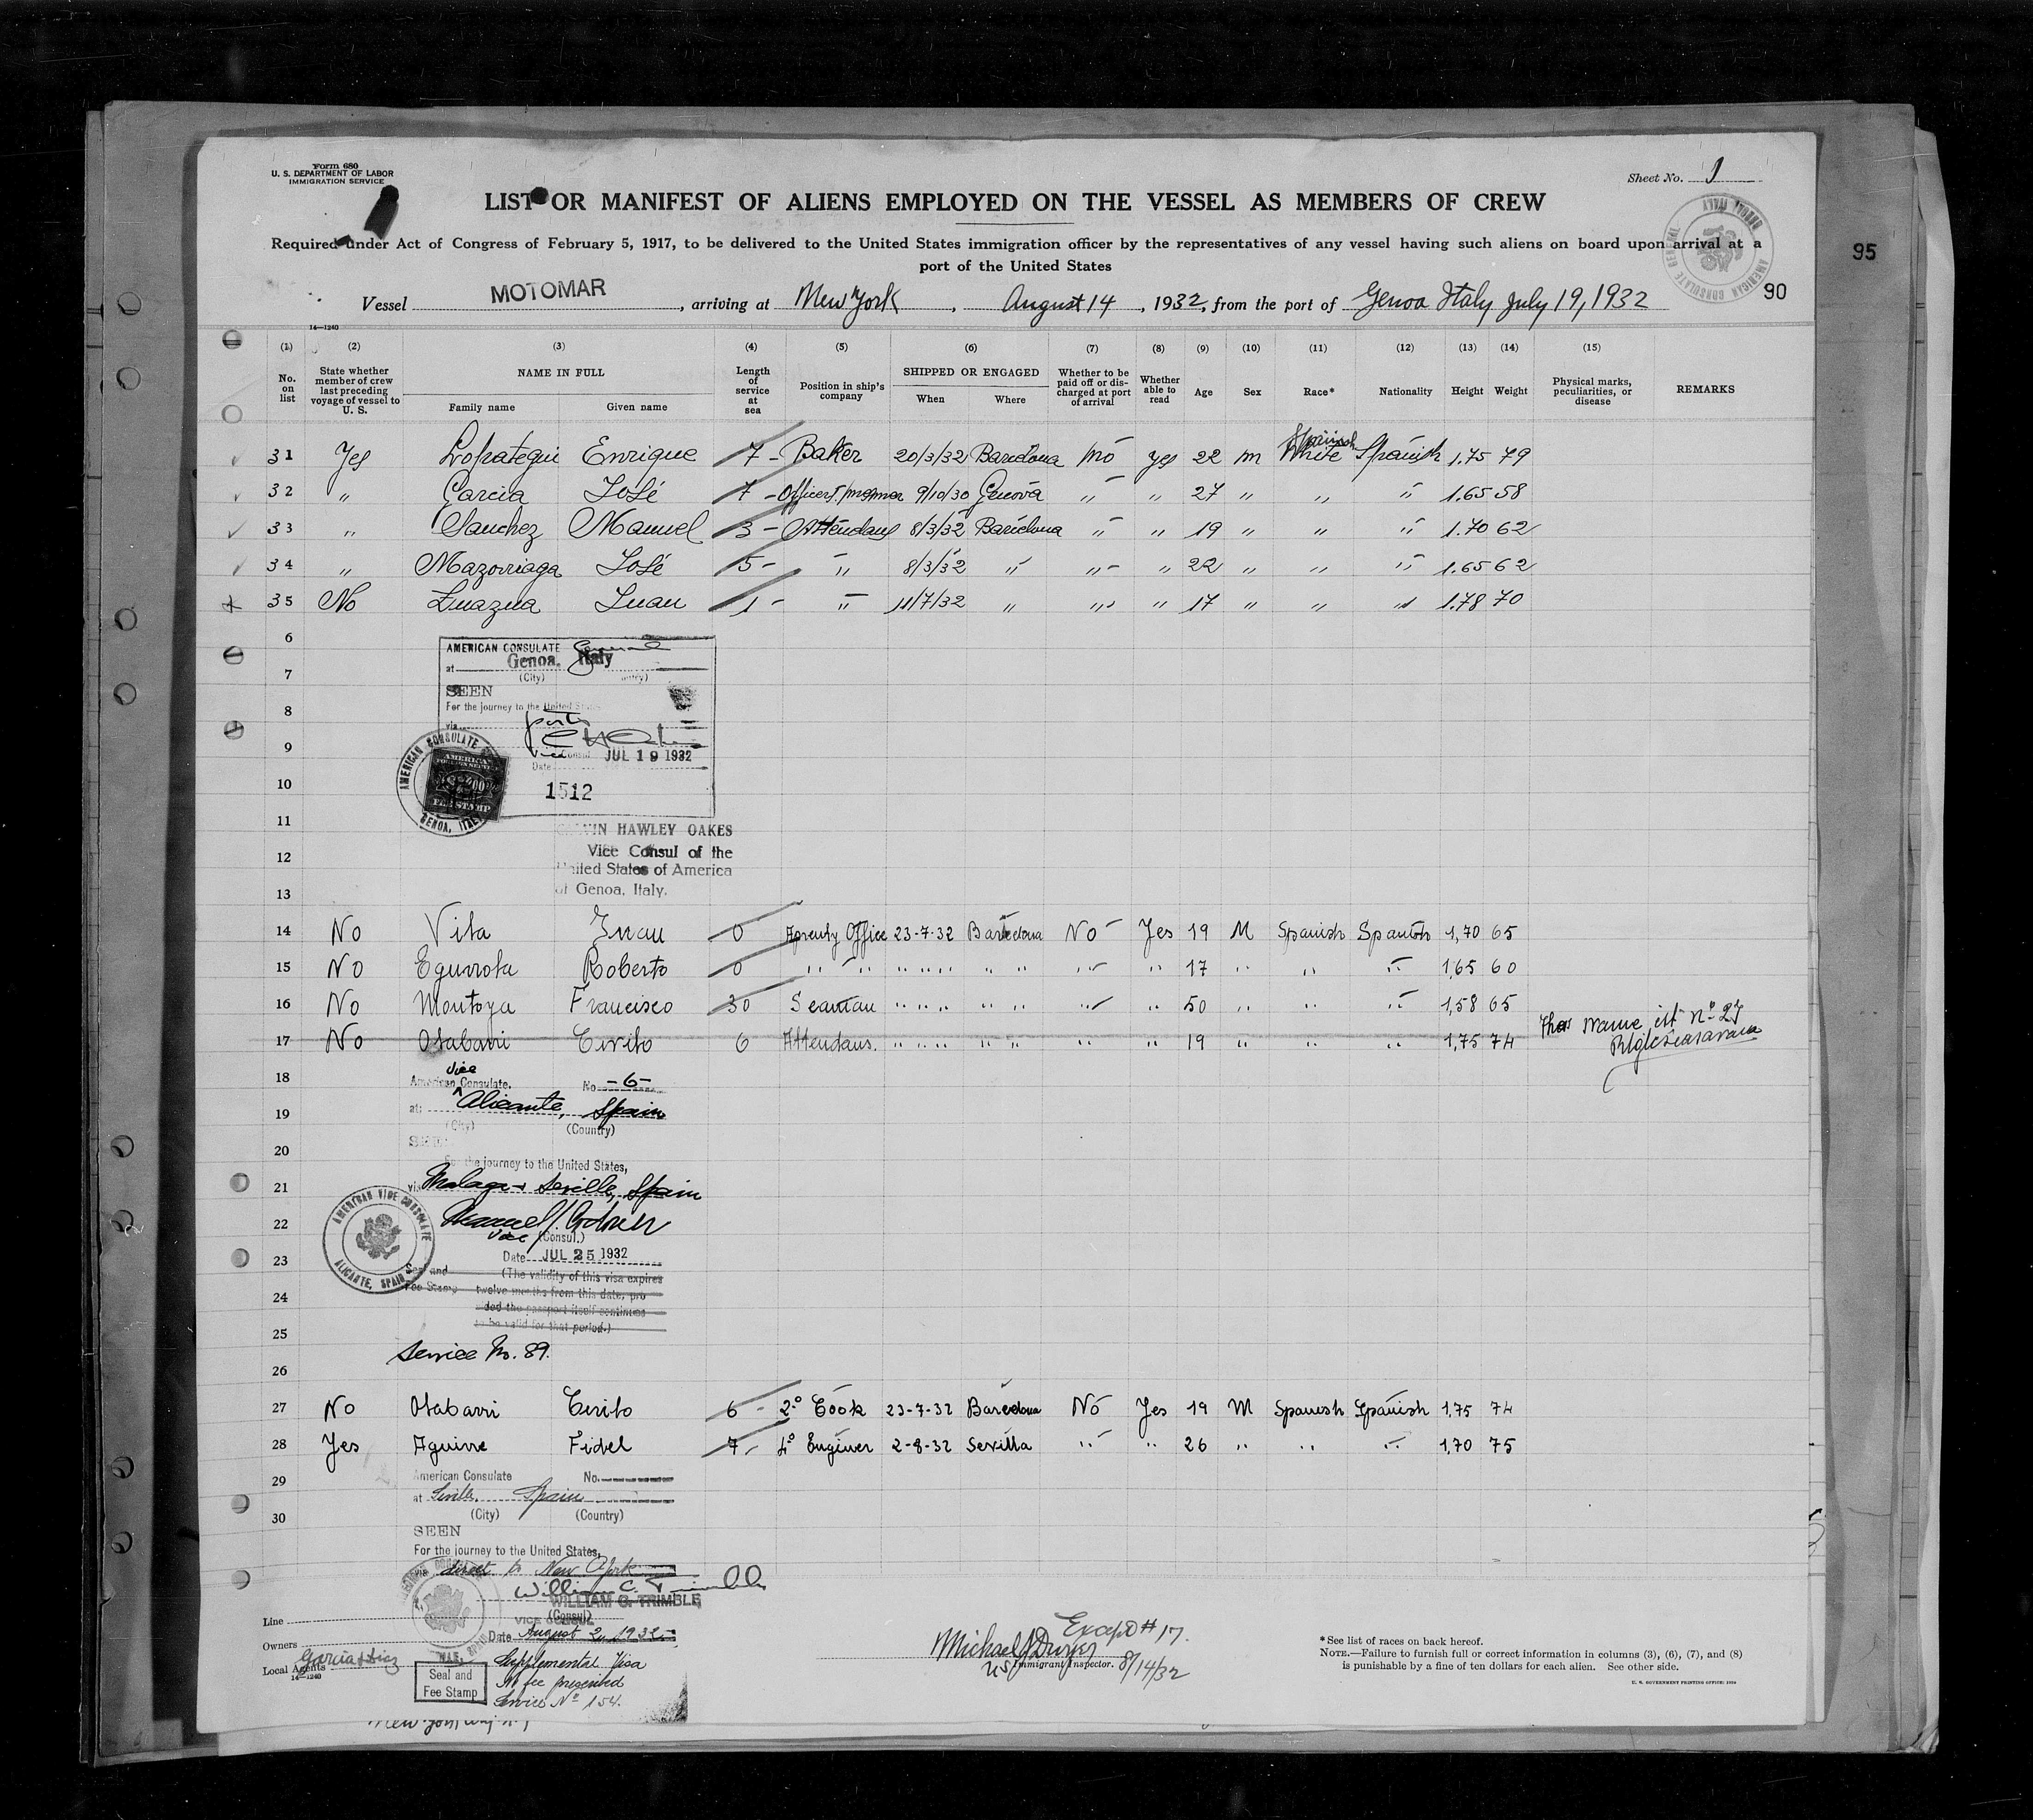 Form 680
U. S. DEPARTMENT OF LABOR
IMMIGRATION SERVICE
Sheet No. 1
LIST OR MANIFEST OF ALIENS EMPLOYED ON THE VESSEL AS MEMBERS OF CREW
Required under Act of Congress of February 5, 1917, to be delivered to the United States immigration officer by the representatives of any vessel having such aliens on board upon arrival at a
port of the United States
AMERICAN CONSULATE GENERAL GENOA, ITALY
95
90
Vessel MOTOMAR, arriving at New York, August 14, 1932, from the port of Genoa Italy July 19, 1932
14—1240
(1) (2) (3) (4) (5) (6) (7) (8) (9) (10) (11) (12) (13) (14) (15)
No. on list
State whether member of crew last preceding voyage of vessel to U. S.
NAME IN FULL
Family name Given name
Length of service at sea
Position in ship's company
SHIPPED OR ENGAGED
When Where
Whether to be paid off or discharged at port of arrival
Whether able to read
Age Sex Race* Nationality Height Weight
Physical marks, peculiarities, or disease
REMARKS
Spanish
31 Yes Lopategui Enrique 7 - Baker 20/3/32 Barcelona No yes 22 m White Spanish 1.75 79
32 " Garcia José 7 - Officers 9/10/30 Genova " " 27 " " " 1.65 58
33 " Sanchez Manuel 3 - Attendans 8/3/32 Barcelona " " 19 " " " 1.70 62
34 " Mazorriaga José 5 - " 8/3/32 " " " 22 " " " 1.65 62
35 No Juan 1 - " 11/7/32 " " " 17 " " " 1.78 70
6
AMERICAN CONSULATE General
at Genoa, Italy
(City)
7
SEEN
8
For the journey to the United States
via
9
Vice Consul JUL 19 1932
Date
AMERICAN CONSULATE GENOA, ITALY
AMERICAN FOREIGN SERVICE
FEE STAMP
10
1512
11
CALVIN HAWLEY OAKES
12
Vice Consul of the
United States of America
13
at Genoa, Italy.
14 No Vita Juan 0 Office 23-7-32 Barcelona No Yes 19 M Spanish Spanish 1,70 65
15 No Egurrola Roberto 0 " " " " " " " " 17 " " " 1,65 60
16 No Montoya Francisco 30 Seaman " " " " " " " 50 " " " 1,58 65
17 No Olabarri Cirilo 6 Attendans. " " " " " " " 19 " " " 1,75 74
name nº 27
18
Vice
American Consulate. No. -6-
19
at: Alicante, Spain
(City) (Country)
20
For the journey to the United States,
21
via Malaga & Seville, Spain
22
Vice (Consul.)
AMERICAN VICE CONSULATE ALICANTE, SPAIN
23
Date JUL 25 1932
Seal and
Fee Stamp
(The validity of this visa expires
24
twelve months from this date, pro
ded the passport itself continues
25
to be valid for that period.)
Service No. 89.
26
27 No Olabarri Cirilo 6 - 2º Cook 23-7-32 Barcelona No Yes 19 M Spanish Spanish 1,75 74
28 Yes Aguirre Fidel 7 - 4º Enginer 2-8-32 Sevilla " " 26 " " " 1,70 75
29
American Consulate No.
at Seville, Spain
(City) (Country)
30
SEEN
For the journey to the United States,
via direct to New York
William C. Trimble
WILLIAM C. TRIMBLE
VICE CONSUL
(Consul)
Date August 2, 1932
Line
Owners
Local Agents Garcia & Diaz
14—1240
Seal and
Fee Stamp
Supplemental Visa
No fee prescribed
Service Nº 154.
Except #17.
Michael J Dwyer
US Immigrant Inspector. 8/14/32
*See list of races on back hereof.
NOTE.—Failure to furnish full or correct information in columns (3), (6), (7), and (8)
is punishable by a fine of ten dollars for each alien. See other side.